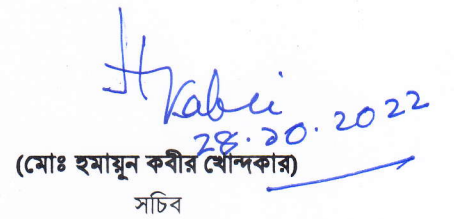 H Kabir
28.10.2022
(মোঃ হুমায়ুন কবীর খোন্দকার)
সচিব